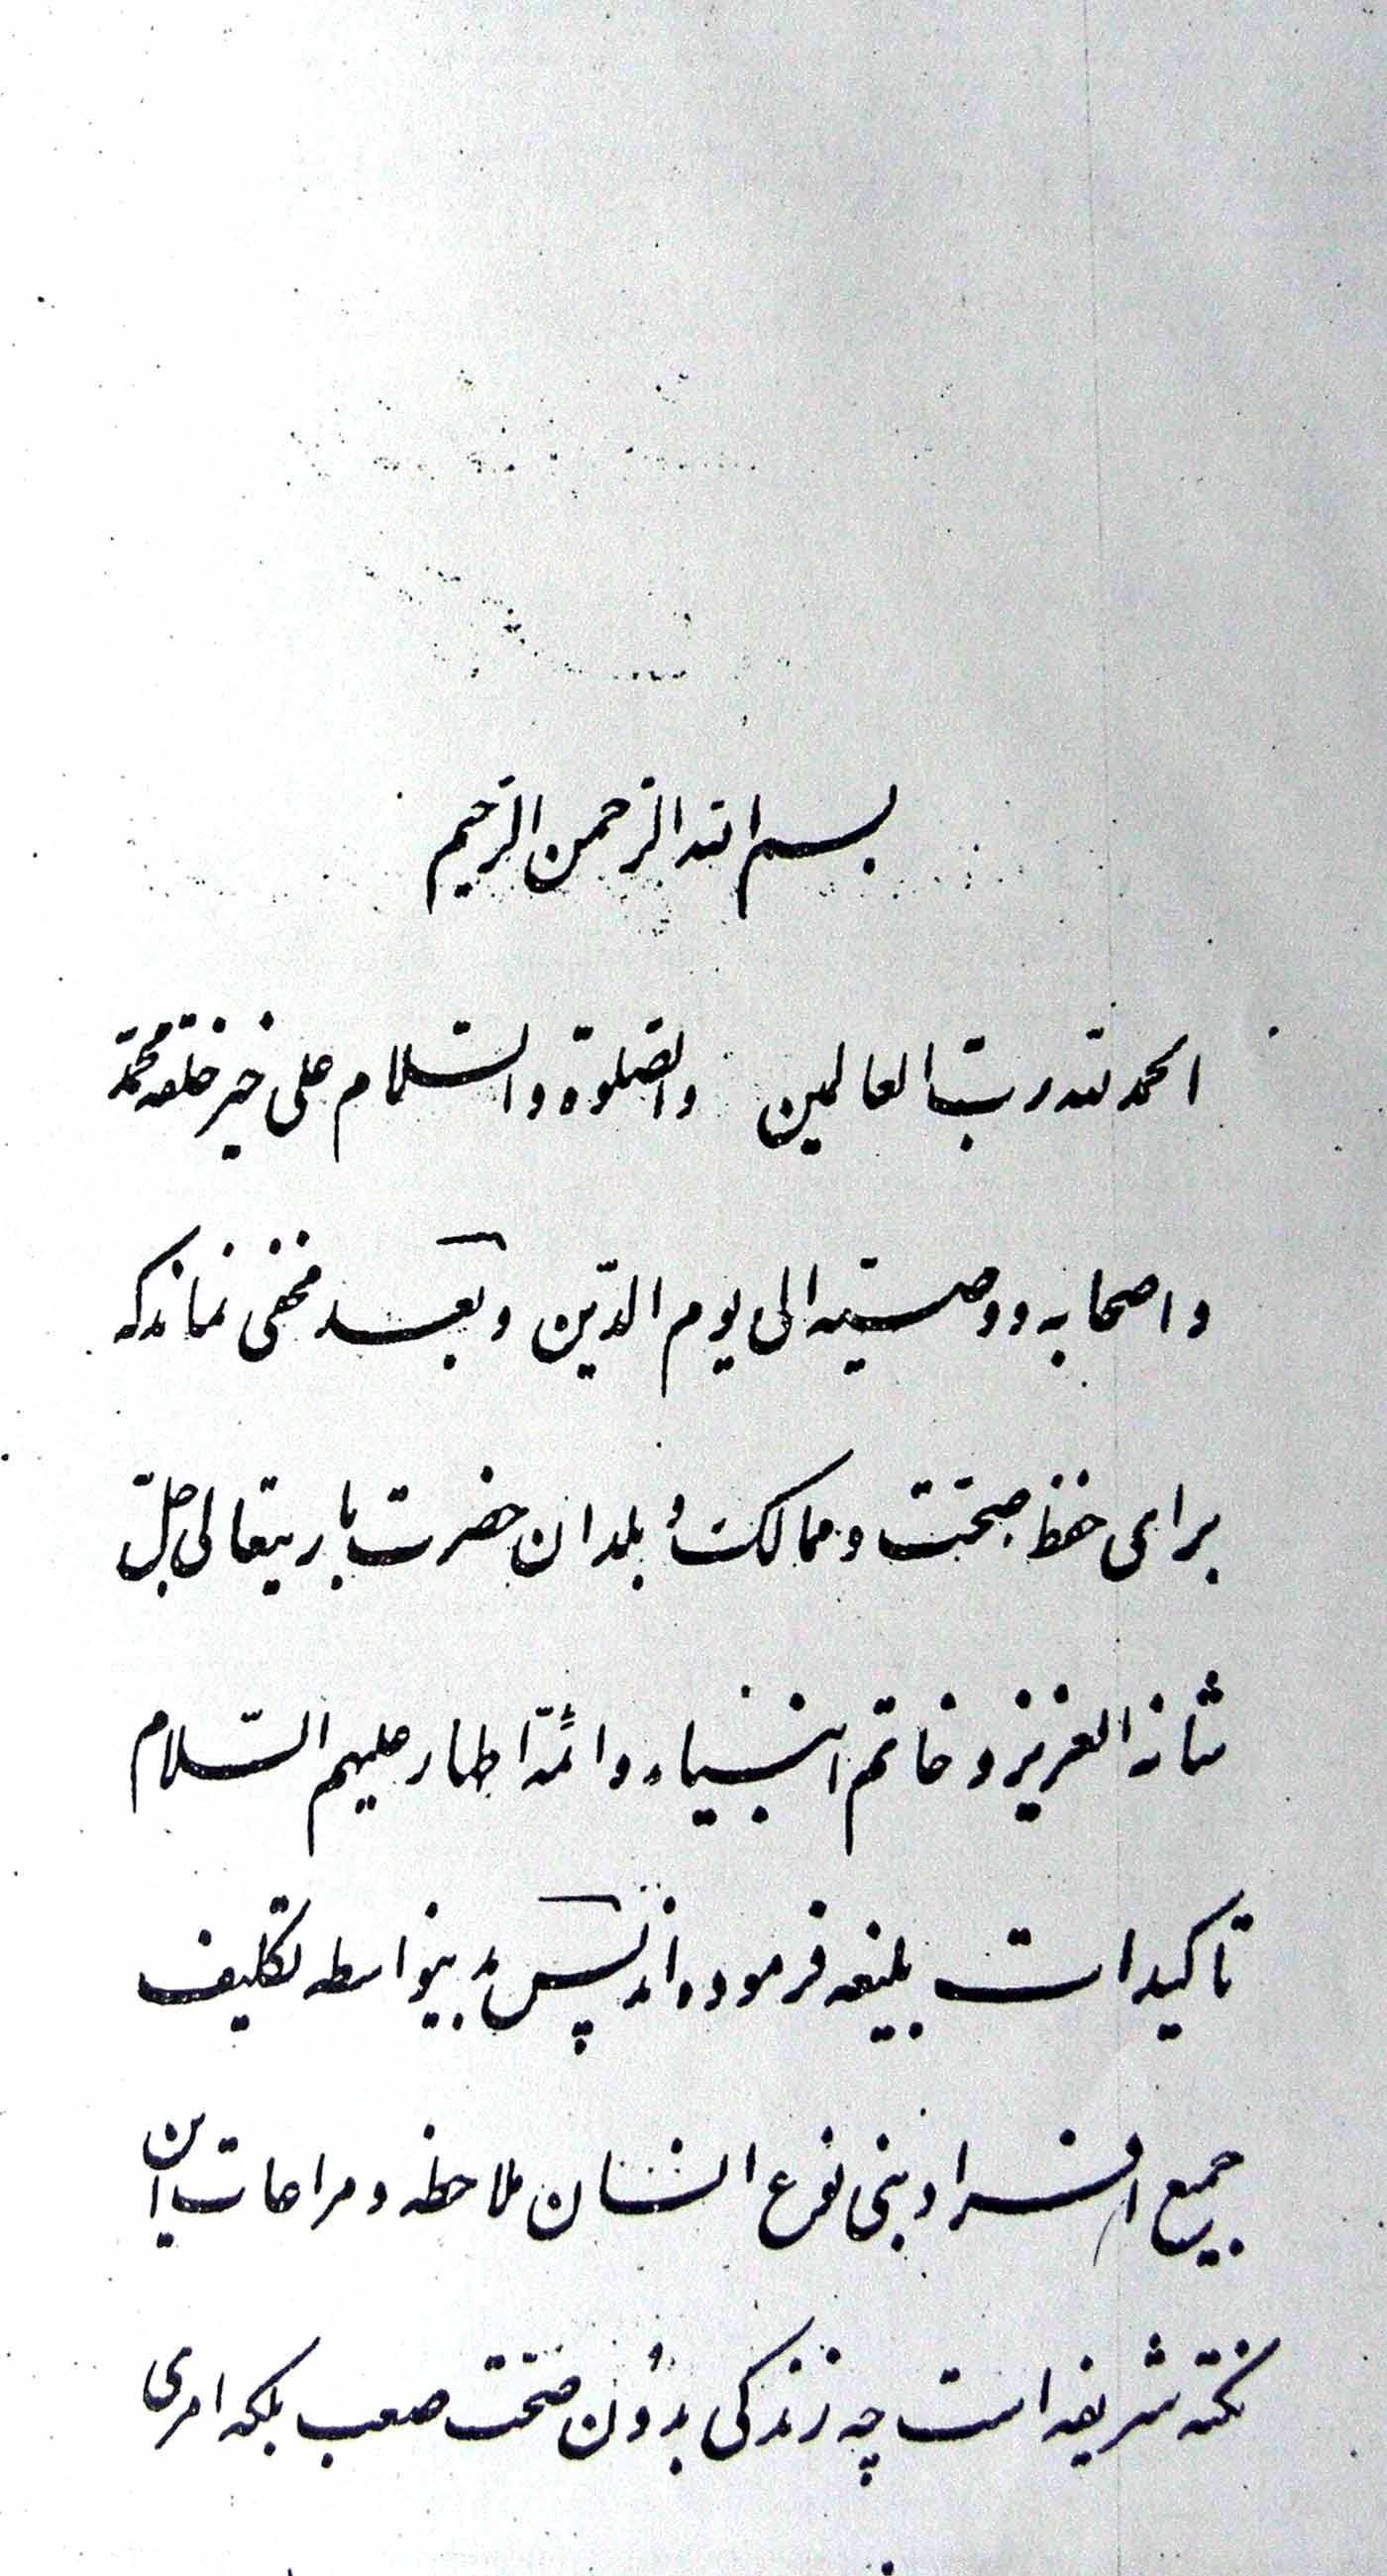 بسم الله الرحمن الرحیم
الحمد لله رب العالمین والصلوة والسلام علی خیر خلقه محمد
و اصحابه و وصیه الی یوم الدین و بعد مخفی نماند که
برای حفظ صحت و ممالک و بلدان حضرت باریتعالی جل
شانه العزیز و خاتم انبیاء و ائمه اطهار علیهم السلام
تاکیدات بلیغه فرموده‌اند پس بدینواسطه تکلیف
جمیع افراد بنی نوع انسان ملاحظه و مراعات این
نکته شریفه است چه زندگی بدون صحت صعب بلکه امری